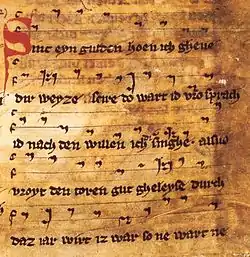 Sint eyn gulden hoen ich gheve
weyze scire do wart id vro sprach
id nach den willen ich singhe. alsus
vroyt den toren gut gheleyse durch
daz iar wirt iz war so ne wart ne